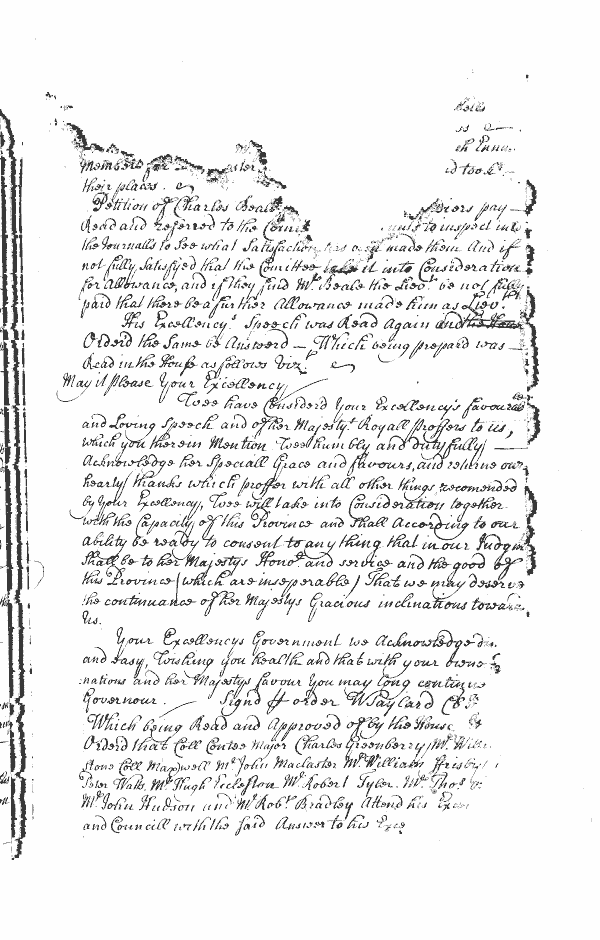 Members for
their places.
Petition of Charles Beale pay
Read and referred to the Comit to inspect into
the Journalls to See what Satisfaction made them And if
not fully Satisfyed that the Comittee take it into Consideration
for Allowance, and if they find Mr. Beale the Liedt. be not fully
paid that there be a further Allowance made him as Lieut.
His Excellency's Speech was Read Again and the House
Orderd the Same be Answerd — Which being prepard was
Read in the House as follows Viz.
May it Please Your Excellency
Wee have Considerd Your Excellency's favourable
and Loving Speech and of her Majestys Royall proffers to us,
which you therein Mention Wee humbly and dutyfully
Acknowledge her Speciall Grace and favours, and returne our
hearty thanks which proffer with all other things recomended
by Your Excellency, Wee will take into Consideration together
with the Capacity of this Province and Shall According to our
ability be ready to consent to any thing that in our Judgm
Shall be to her Majestys Honor. and service and the good of
this Province (which are inseperable) That we may deserve
the continuance of her Majestys Gracious inclinations towards
Us.
Your Excellencys Government we Acknowledge
and easy, Wishing you health and that with your owne
nations and her Majestys favour You may long continue
Governour. Signd order W Taylard
Which being Read and Approved of by the House
Orderd that Coll Contee Major Charles Greenberry Mr. Will
stone Coll Maxwell Mr. John Maclaster Mr. William Frisby
Peter Watts, Mr. Hugh Eccleston Mr. Robert Tyler. Mr. Thos
Mr. John Hudson and Mr. Robt. Bradley Attend his Exce
and Councill with the said Answer to his Exce